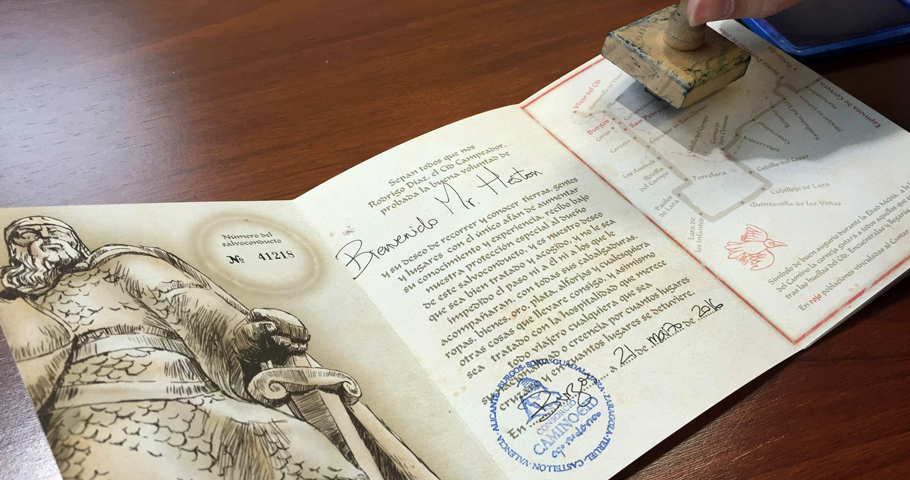 Número del
salvoconducto
Nº 41218
Sepan todos que nos
Rodrigo Díaz, el Cid Campeador,
probada la buena voluntad de
Bienvenido Mr. Heston
y su deseo de recorrer y conocer tierras, gentes
y lugares con el único afán de aumentar
su conocimiento y experiencia, recibo bajo
nuestra protección especial al dueño
de este salvoconducto, y es nuestro deseo
que sea bien tratado y acogido, y no le sea
impedido el paso ni a él ni a los que le
acompañaran, con todas sus cabalgaduras,
ropas, bienes, oro, plata, alforjas y cualesquiera
otras cosas que llevare consigo, y asimismo
sea tratado con la hospitalidad que merece
todo viajero cualquiera que sea
su nacionalidad o creencia por cuantos lugares
cruzare y en cuantos lugares se detuviere.
En Burgos a 21 de marzo de 2016
CONSORCIO
CAMINO CID
ALICANTE BURGOS SORIA GUADALAJARA ZARAGOZA TERUEL CASTELLÓN VALENCIA
Vivar del Cid
Burgos
San Pedro
Espinosa de Cervera
Torrelara
Cubillo del César
Cubillejo de Lara
Quintanilla de las Viñas
Lara de
los Infantes
Revilla
del Campo
Símbolo de buen augurio durante la Edad Media, la
la corneja guiará a todos aquellos que
tras las huellas del Cid. Encuéntrala y llegarás
En rojo poblaciones vinculadas al Cantar